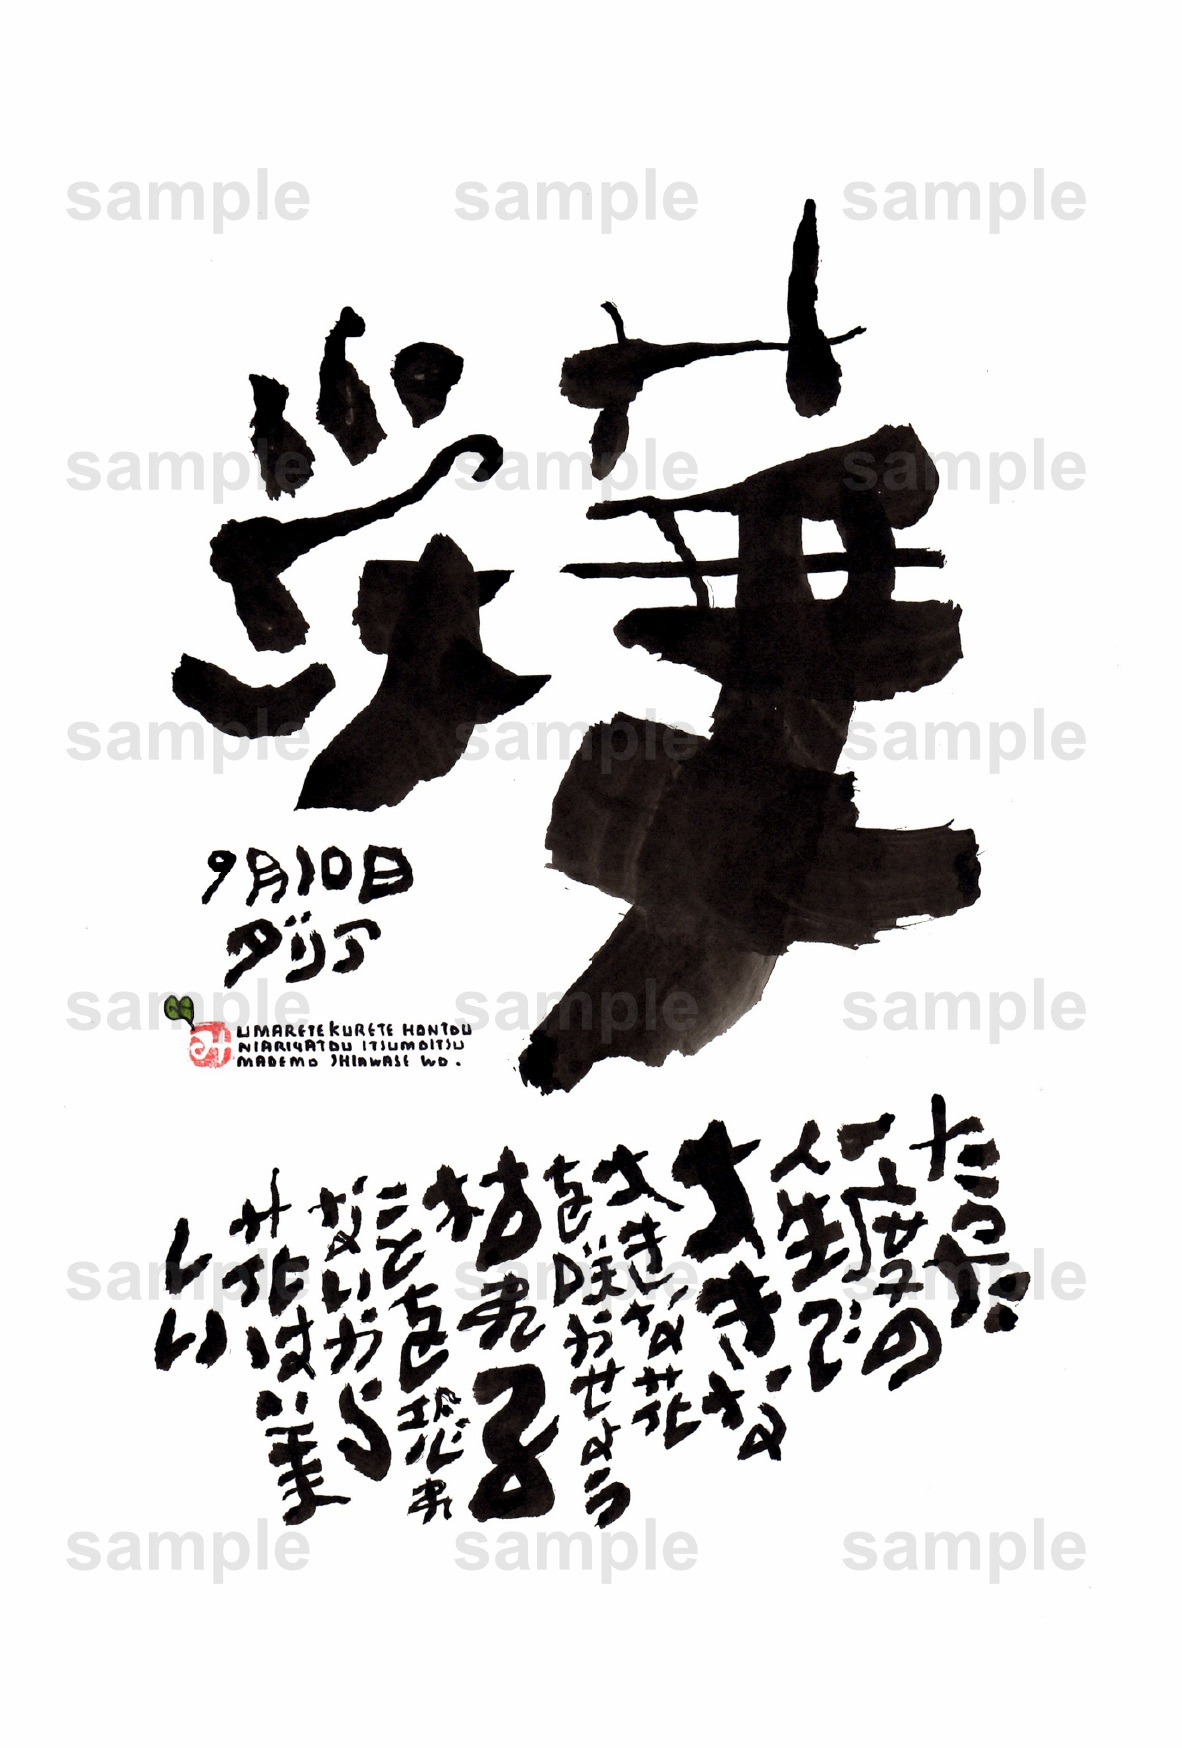 華
9月10日
ダリア
み
UMARETEKURETE HONTOU
NIARIGATOU ITSUMOITSU
MADEMO SHIAWASE WO.
たった
一度の
人生で
大きな
大きな花
を咲かせよう
枯れる
ことを恐れ
ないから
花は美
しい
sample sample sample
sample sample sample
sample sample sample
sample sample sample
sample sample sample
sample sample sample